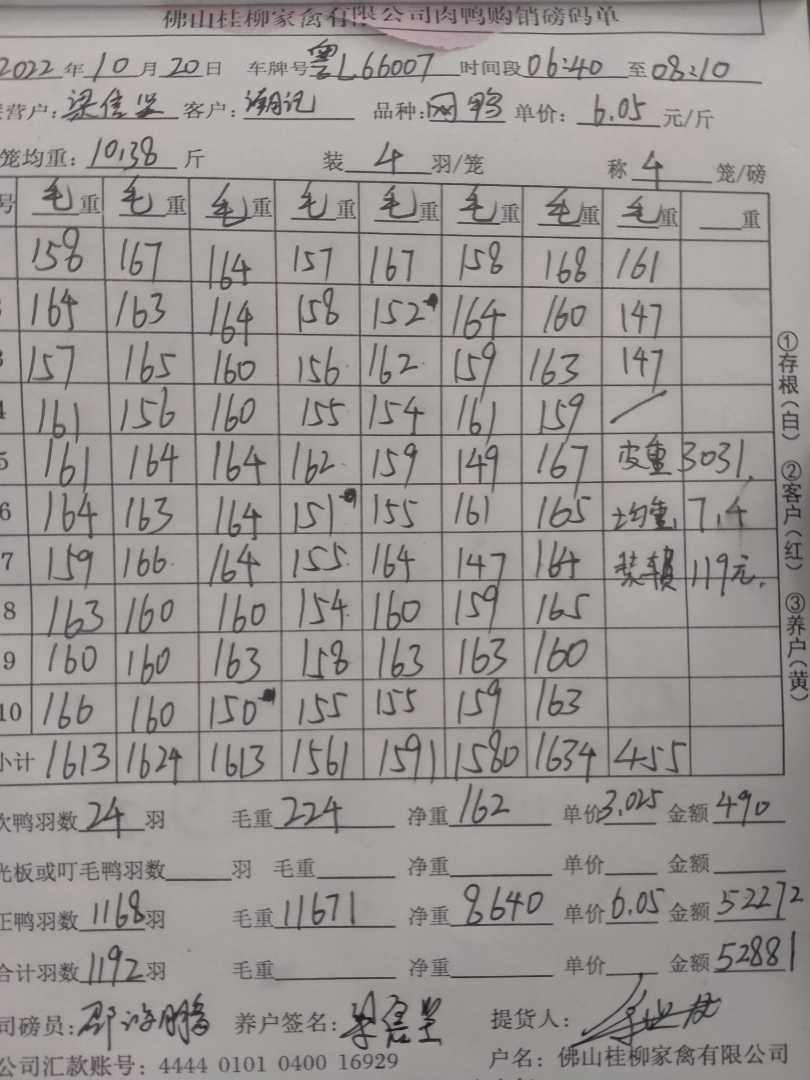 佛山桂柳家禽有限公司肉鸭购销磅码单
2022年10月20日 车牌号粤L66007 时间段06:40至08:10
营户:梁信坚 客户: 品种: 单价:6.05元/斤
笼均重:10.38斤 装4羽/笼 称4笼/磅
号 毛重 毛重 毛重 毛重 毛重 毛重 毛重 毛重 重
158 167 164 157 167 158 168 161
164 163 164 158 152 164 160 147
157 165 160 156 162 159 163 147
161 156 160 155 154 161 159 /
5 161 164 164 162 159 149 167 皮重 3031
6 164 163 164 151 155 161 165 均重 7.4
7 159 166 164 155 164 147 164 装车费 119元
8 163 160 160 154 160 159 165
9 160 160 163 158 163 163 160
10 166 160 150 155 155 159 163
小计 1613 1624 1613 1561 1591 1580 1634 455
次鸭羽数24羽 毛重224 净重162 单价3.025 金额490
光板或叮毛鸭羽数 羽 毛重 净重 单价 金额
正鸭羽数1168羽 毛重11671 净重8640 单价6.05 金额52272
合计羽数1192羽 毛重 净重 单价 金额52881
司磅员: 养户签名:梁信坚 提货人:
公司汇款账号:4444 0101 0400 16929 户名:佛山桂柳家禽有限公司
①存根(白) ②客户(红) ③养户(黄)